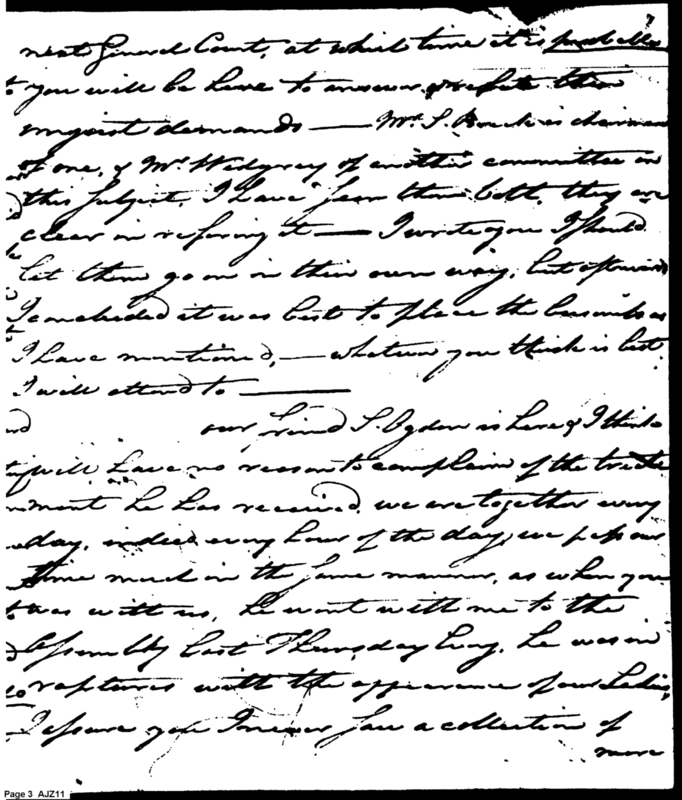 next General Court, at which time it is probable
you will be here to answer & refute their
unjust demands — Mr. S. Breck is chairman
of one, & Mr. Widgrey of another committee on
this subject, I have seen them both, they are
clear in refusing it — I wrote you I should
let them go on in their own way, but afterwards
I concluded it was best to place the business as
I have mentioned, — whatever you think is best
I will attend to —
our friend S. Ogden is here & I think
will have no reason to complain of the treate
ment he has received, we are together every
day, indeed every hour of the day, we pass our
time much in the same manner, as when you
was with us, he went with me to the
Assembly last Thursday Eveg, he was in
raptures with the appearance of our Ladies,
I assure you I never saw a collection of
more
Page 3 AJZ11